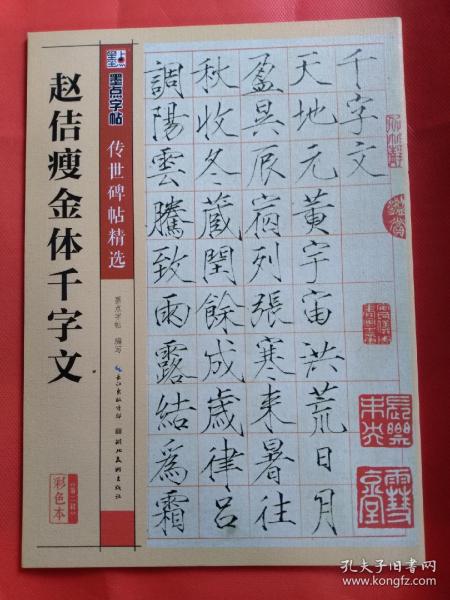 赵佶瘦金体千字文
彩色本
（第二辑）
墨点
墨点字帖
传世碑帖精选
墨点字帖 编写
长江出版传媒 湖北美术出版社
千字文
天地元黄宇宙洪荒日月
盈昃辰宿列張寒来暑往
秋收冬蔵閏餘成歳律吕
調陽雲騰致雨露結爲霜
長樂未央
孔夫子旧书网
www.kongfz.com